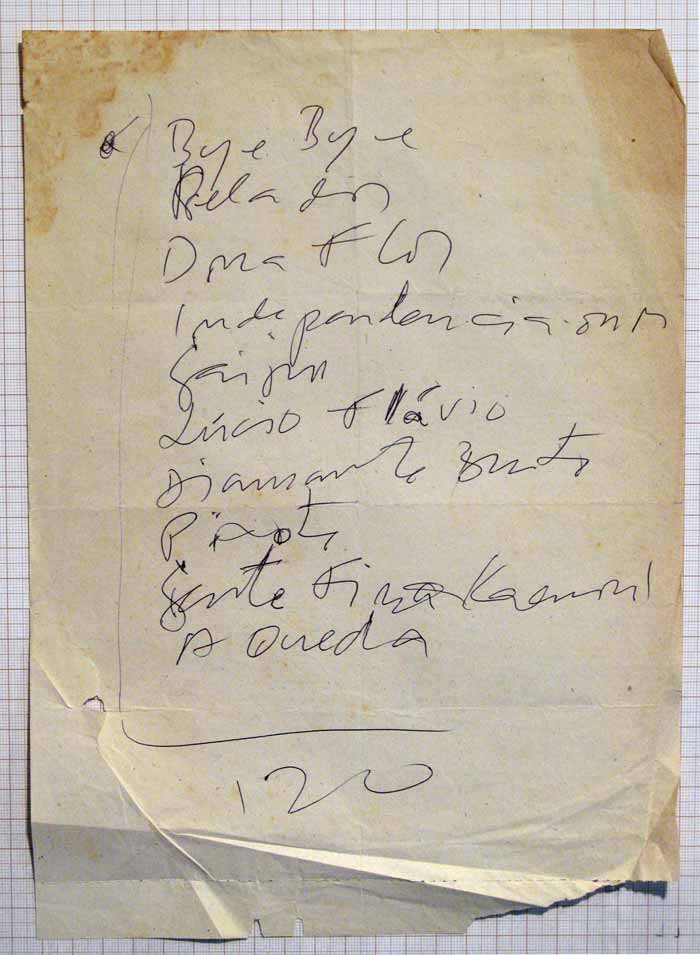 Bye Bye
Dona Flor
Independencia ou m
Gaijin
Lúcio Flávio
Diamante Bruto
Pixote
Gente Fina
A Queda
120